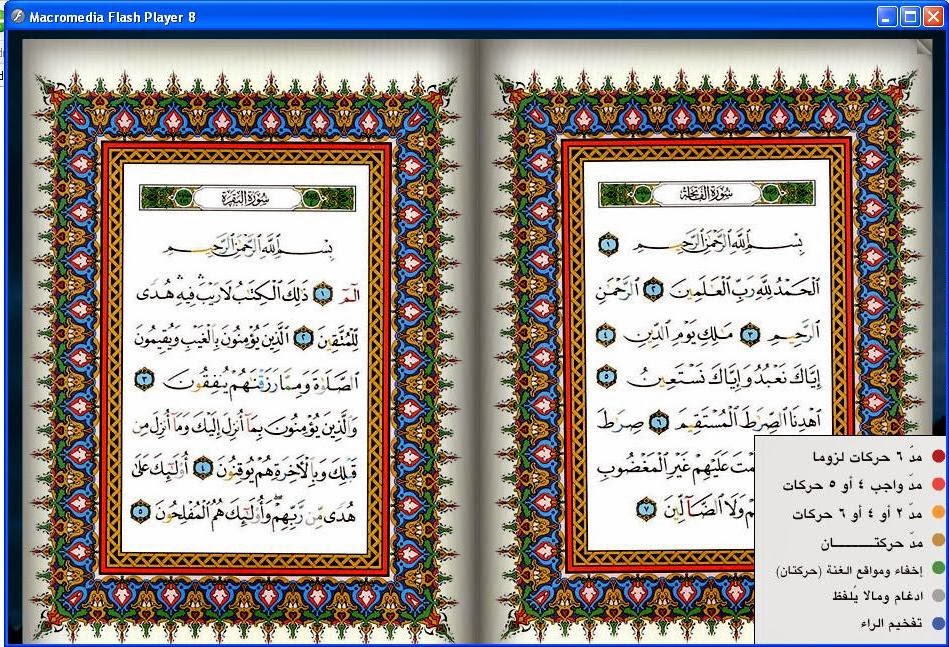 Macromedia Flash Player 8
سُورَةُ الْفَاتِحَة
بِسْمِ ٱللَّهِ ٱلرَّحْمَٰنِ ٱلرَّحِيمِ ١
ٱلْحَمْدُ لِلَّهِ رَبِّ ٱلْعَٰلَمِينَ ٢ ٱلرَّحْمَٰنِ
ٱلرَّحِيمِ ٣ مَٰلِكِ يَوْمِ ٱلدِّينِ ٤
إِيَّاكَ نَعْبُدُ وَإِيَّاكَ نَسْتَعِينُ ٥
ٱهْدِنَا ٱلصِّرَٰطَ ٱلْمُسْتَقِيمَ ٦ صِرَٰطَ
عَلَيْهِمْ غَيْرِ ٱلْمَغْضُوبِ
وَلَا ٱلضَّآلِّينَ ٧
سُورَةُ الْبَقَرَة
بِسْمِ ٱللَّهِ ٱلرَّحْمَٰنِ ٱلرَّحِيمِ
الٓمٓ ١ ذَٰلِكَ ٱلْكِتَٰبُ لَا رَيْبَ فِيهِ هُدًى
لِّلْمُتَّقِينَ ٢ ٱلَّذِينَ يُؤْمِنُونَ بِٱلْغَيْبِ وَيُقِيمُونَ
ٱلصَّلَوٰةَ وَمِمَّا رَزَقْنَٰهُمْ يُنفِقُونَ ٣
وَٱلَّذِينَ يُؤْمِنُونَ بِمَآ أُنزِلَ إِلَيْكَ وَمَآ أُنزِلَ مِن
قَبْلِكَ وَبِٱلْءَاخِرَةِ هُمْ يُوقِنُونَ ٤ أُو۟لَٰٓئِكَ عَلَىٰ
هُدًى مِّن رَّبِّهِمْ وَأُو۟لَٰٓئِكَ هُمُ ٱلْمُفْلِحُونَ ٥
مدّ ٦ حركات لزوما
مدّ واجب ٤ أو ٥ حركات
مدّ ٢ أو ٤ أو ٦ حركات
مدّ حركتـــــــــان
إخفاء ومواقع الغنة (حركتان)
ادغام ومالا يلفظ
تفخيم الراء